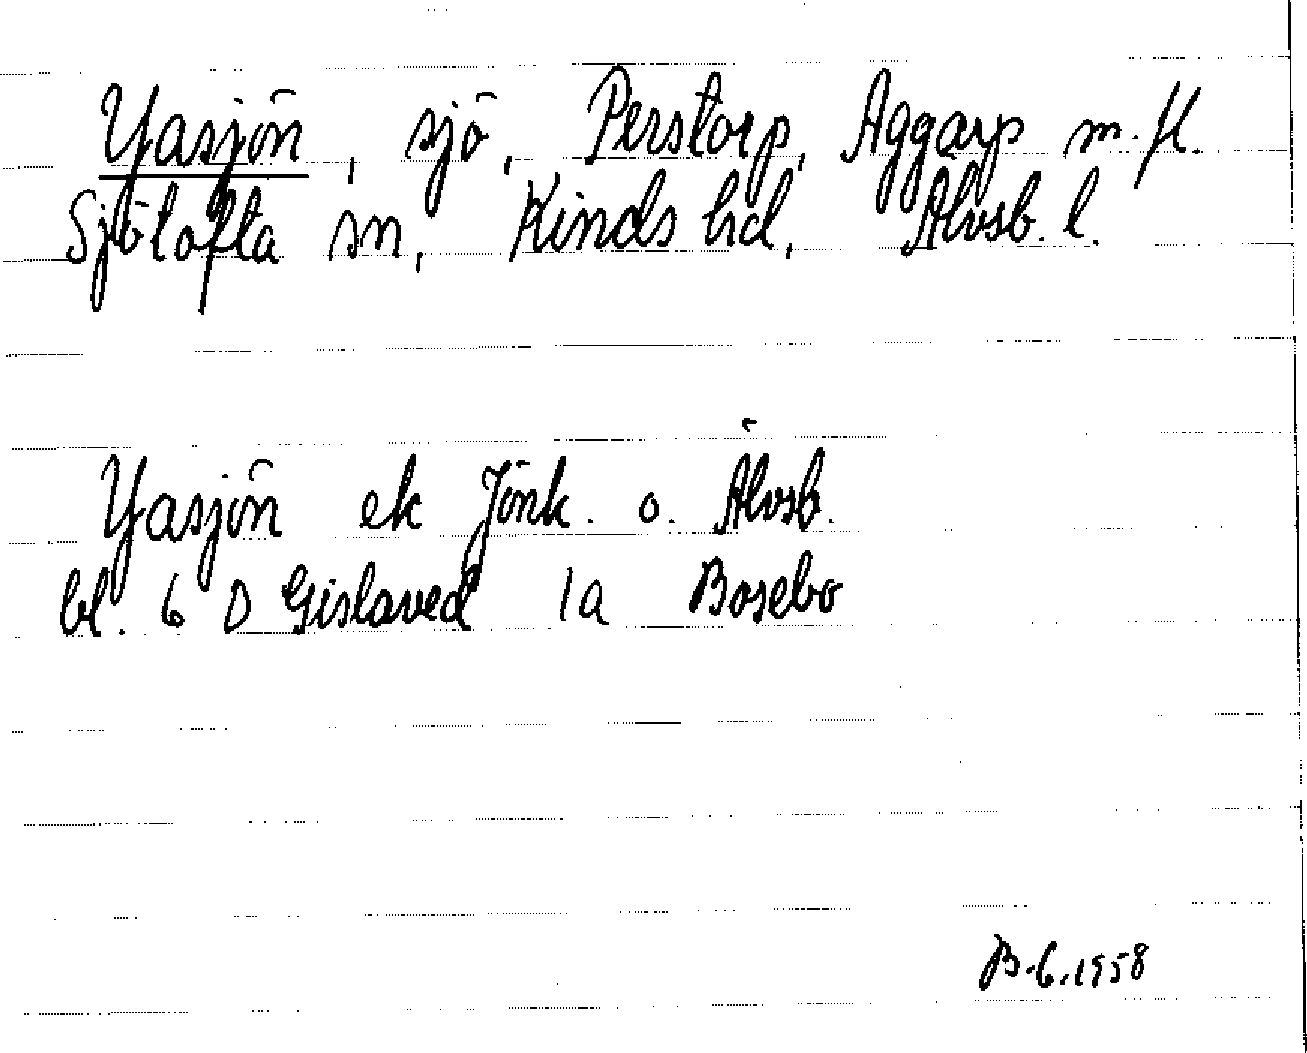 Yasjön, sjö, Perstorp, Aggarp m.fl.
Sjötofta sn, Kinds hd, Älvsb. l.
Yasjön ek Jönk. o. Älvsb.
bl. 6 D Gislaved 1a Bosebo
B.G.1958